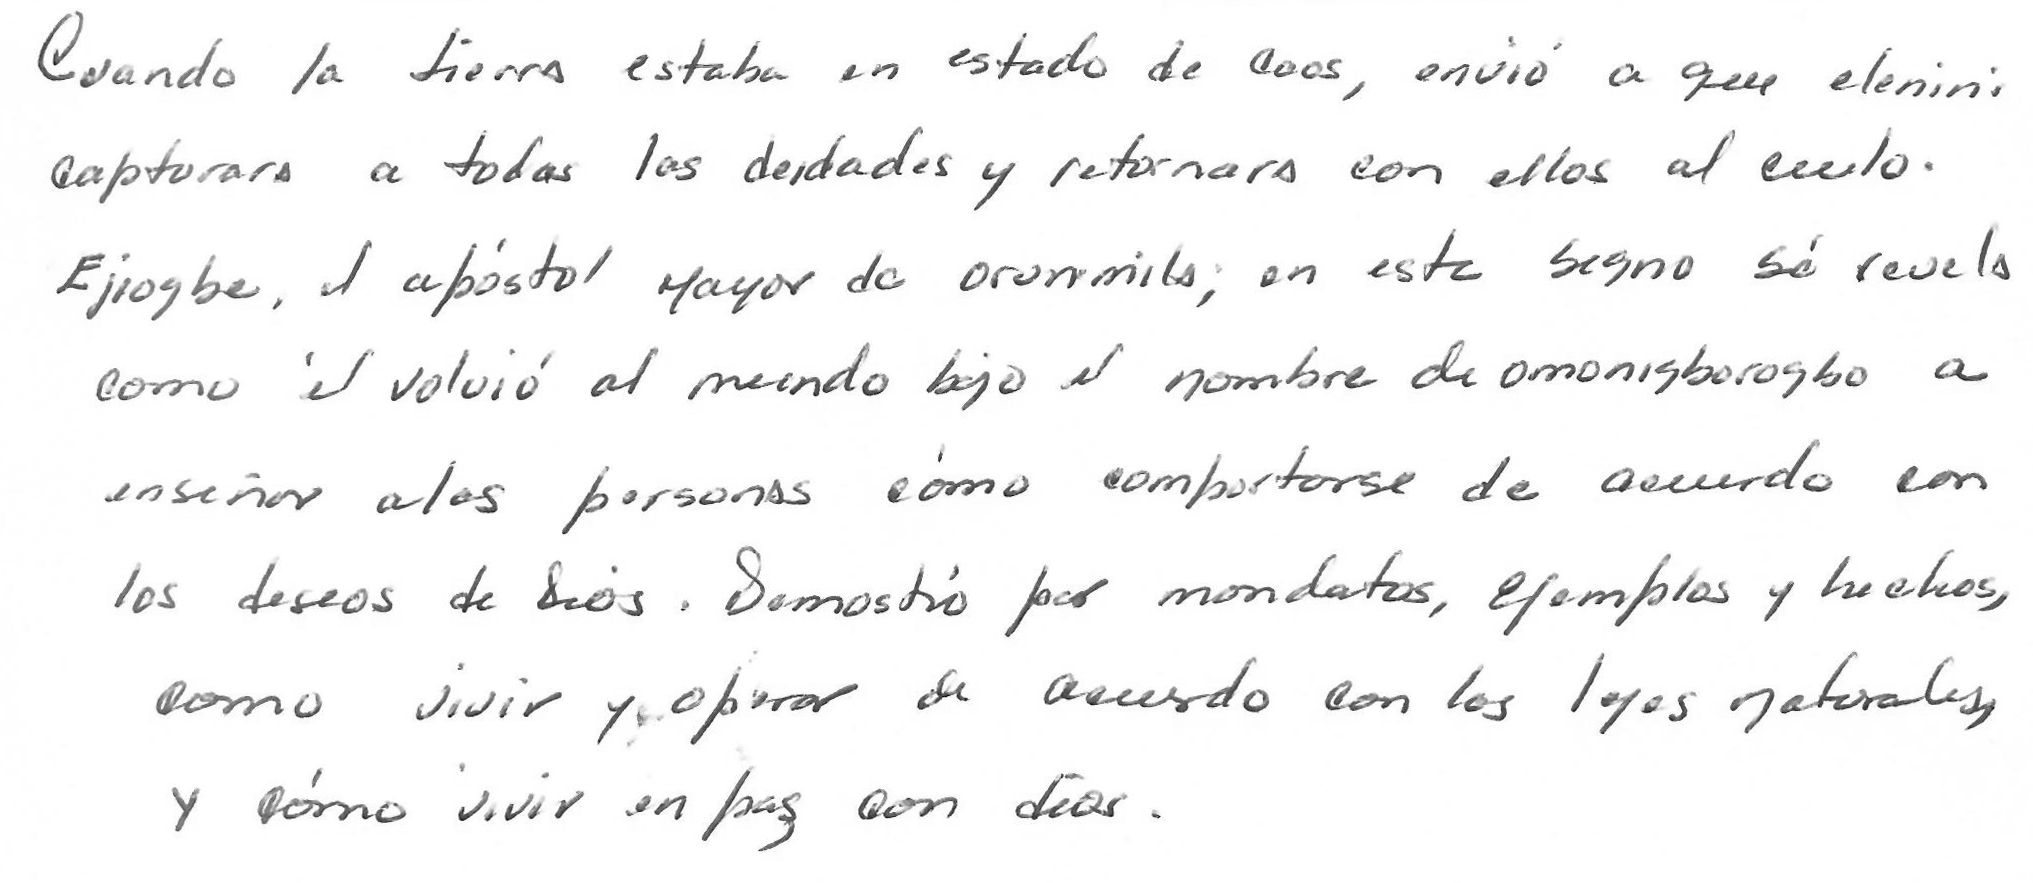 Cuando la tierra estaba en estado de caos, envió a que elenini
capturara a todas las deidades y retornara con ellos al cielo.
Ejiogbe, el apóstol mayor de orunmila; en este signo sé revela
como él volvió al mundo bajo el nombre de omonigborogbo a
enseñar a las personas cómo comportarse de acuerdo con
los deseos de Dios. Demostró por mandatos, ejemplos y hechos,
como vivir y operar de acuerdo con las leyes naturales,
y cómo vivir en paz con dios.